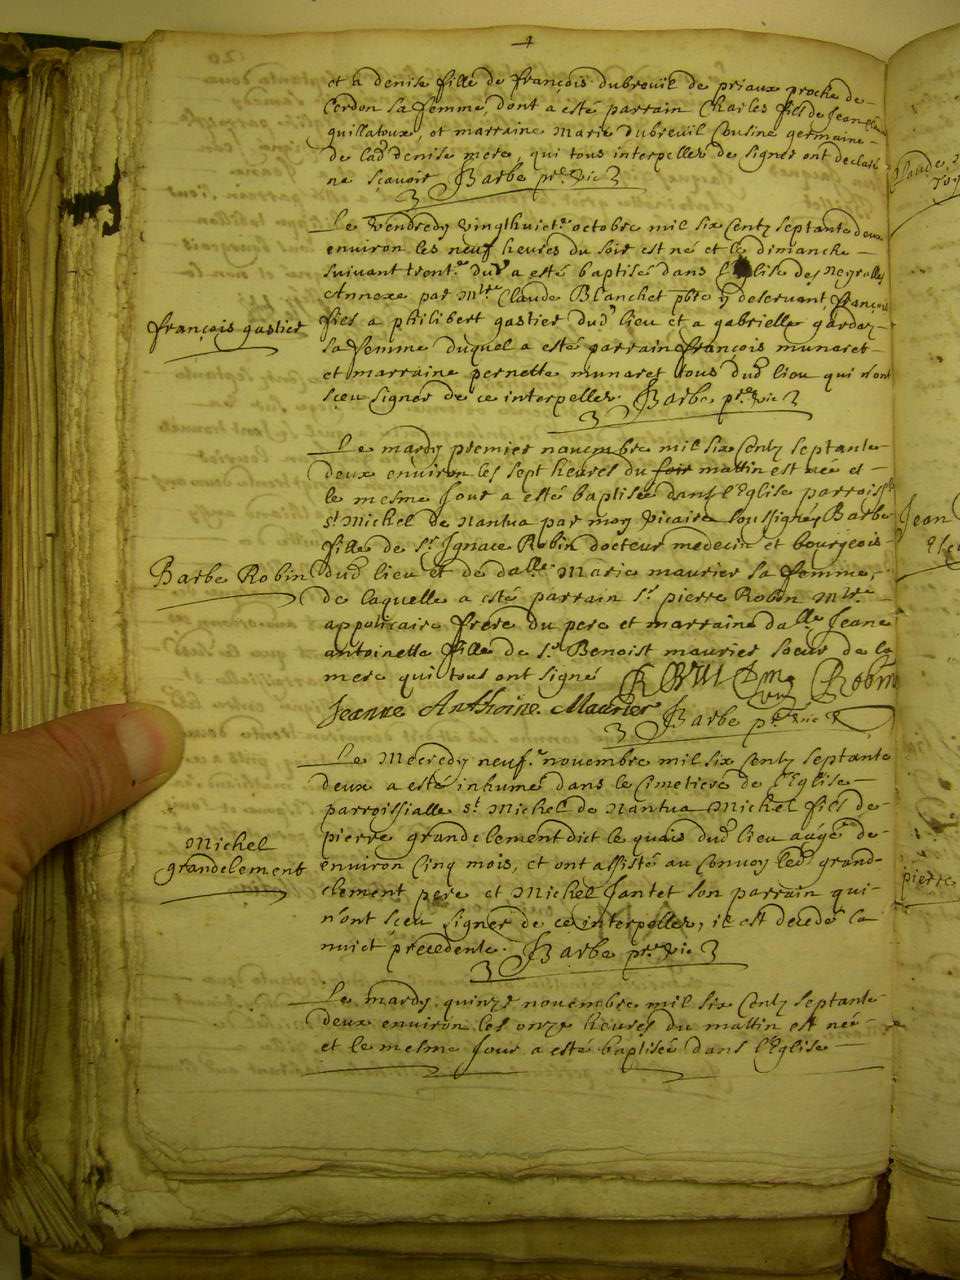 et a denise fille de françois dubreuil de priaux proche de
Cerdon sa femme, dont a esté parrain Charles fils de Jean
guillatoux, et marraine Marie Dubreuil Cousine germaine
de lad. denise mere, qui tous interpellez de signer ont declaré
ne scavoir Barbe pre. vic
Le Vendredy vingthuict.e octobre mil six Centz septante deux
environ les neuf heures du soir est né et le dimanche
suivant trent.e dud a esté baptisé dans l'Eglise des Neyrolles
Annexe par M.re Claude Blanchet pbre y deservant, françois
fils a philibert gastier dud. lieu et a gabrielle gardaz
sa femme duquel a esté parrain françois munaret
et marraine pernette munaret tous dud. lieu qui n'ont
sçeu signer de ce interpellez Barbe pre. vic
françois gastier
Le mardy premier novembre mil six Centz septante
deux environ les sept heures du soir mattin est née et
le mesme Jour a esté baptisée dans l'Eglise parroiss.
st Michel de Nantua par moy vicaire soussigné Barbe
fille de Sr. Ignace Robin docteur medecin et bourgeois
dud. lieu et de da.lle Marie maurier sa femme,
de laquelle a esté parrain sr. pierre Robin M.re
appoticaire frere du pere et marraine da.lle Jeane
antoinette fille de Sr. Benoist maurier soeur de la
mere qui tous ont signé Robin
Jeanne Anthoine Maurier Barbe pre. vic
Barbe Robin
Le Mecredy neuf.e novembre mil six Centz septante
deux a esté inhumé dans le Cimetiere de l'Eglise
parroissialle st. Michel de Nantua Michel fils de
pierre grandclement dict le quais dud. lieu aagé de
environ Cinq mois, et ont assisté au Convoy led. grand-
clement pere et Michel Jantet son parrain qui
n'ont sçeu signer de ce interpellez, il est decedé la
nuict precedente. Barbe pre. vic
Michel
grandclement
Le mardy quinze novembre mil six Centz septante
deux environ les onze heures du mattin est née
et le mesme Jour a esté baptisée dans l'Eglise
Jean
pierre